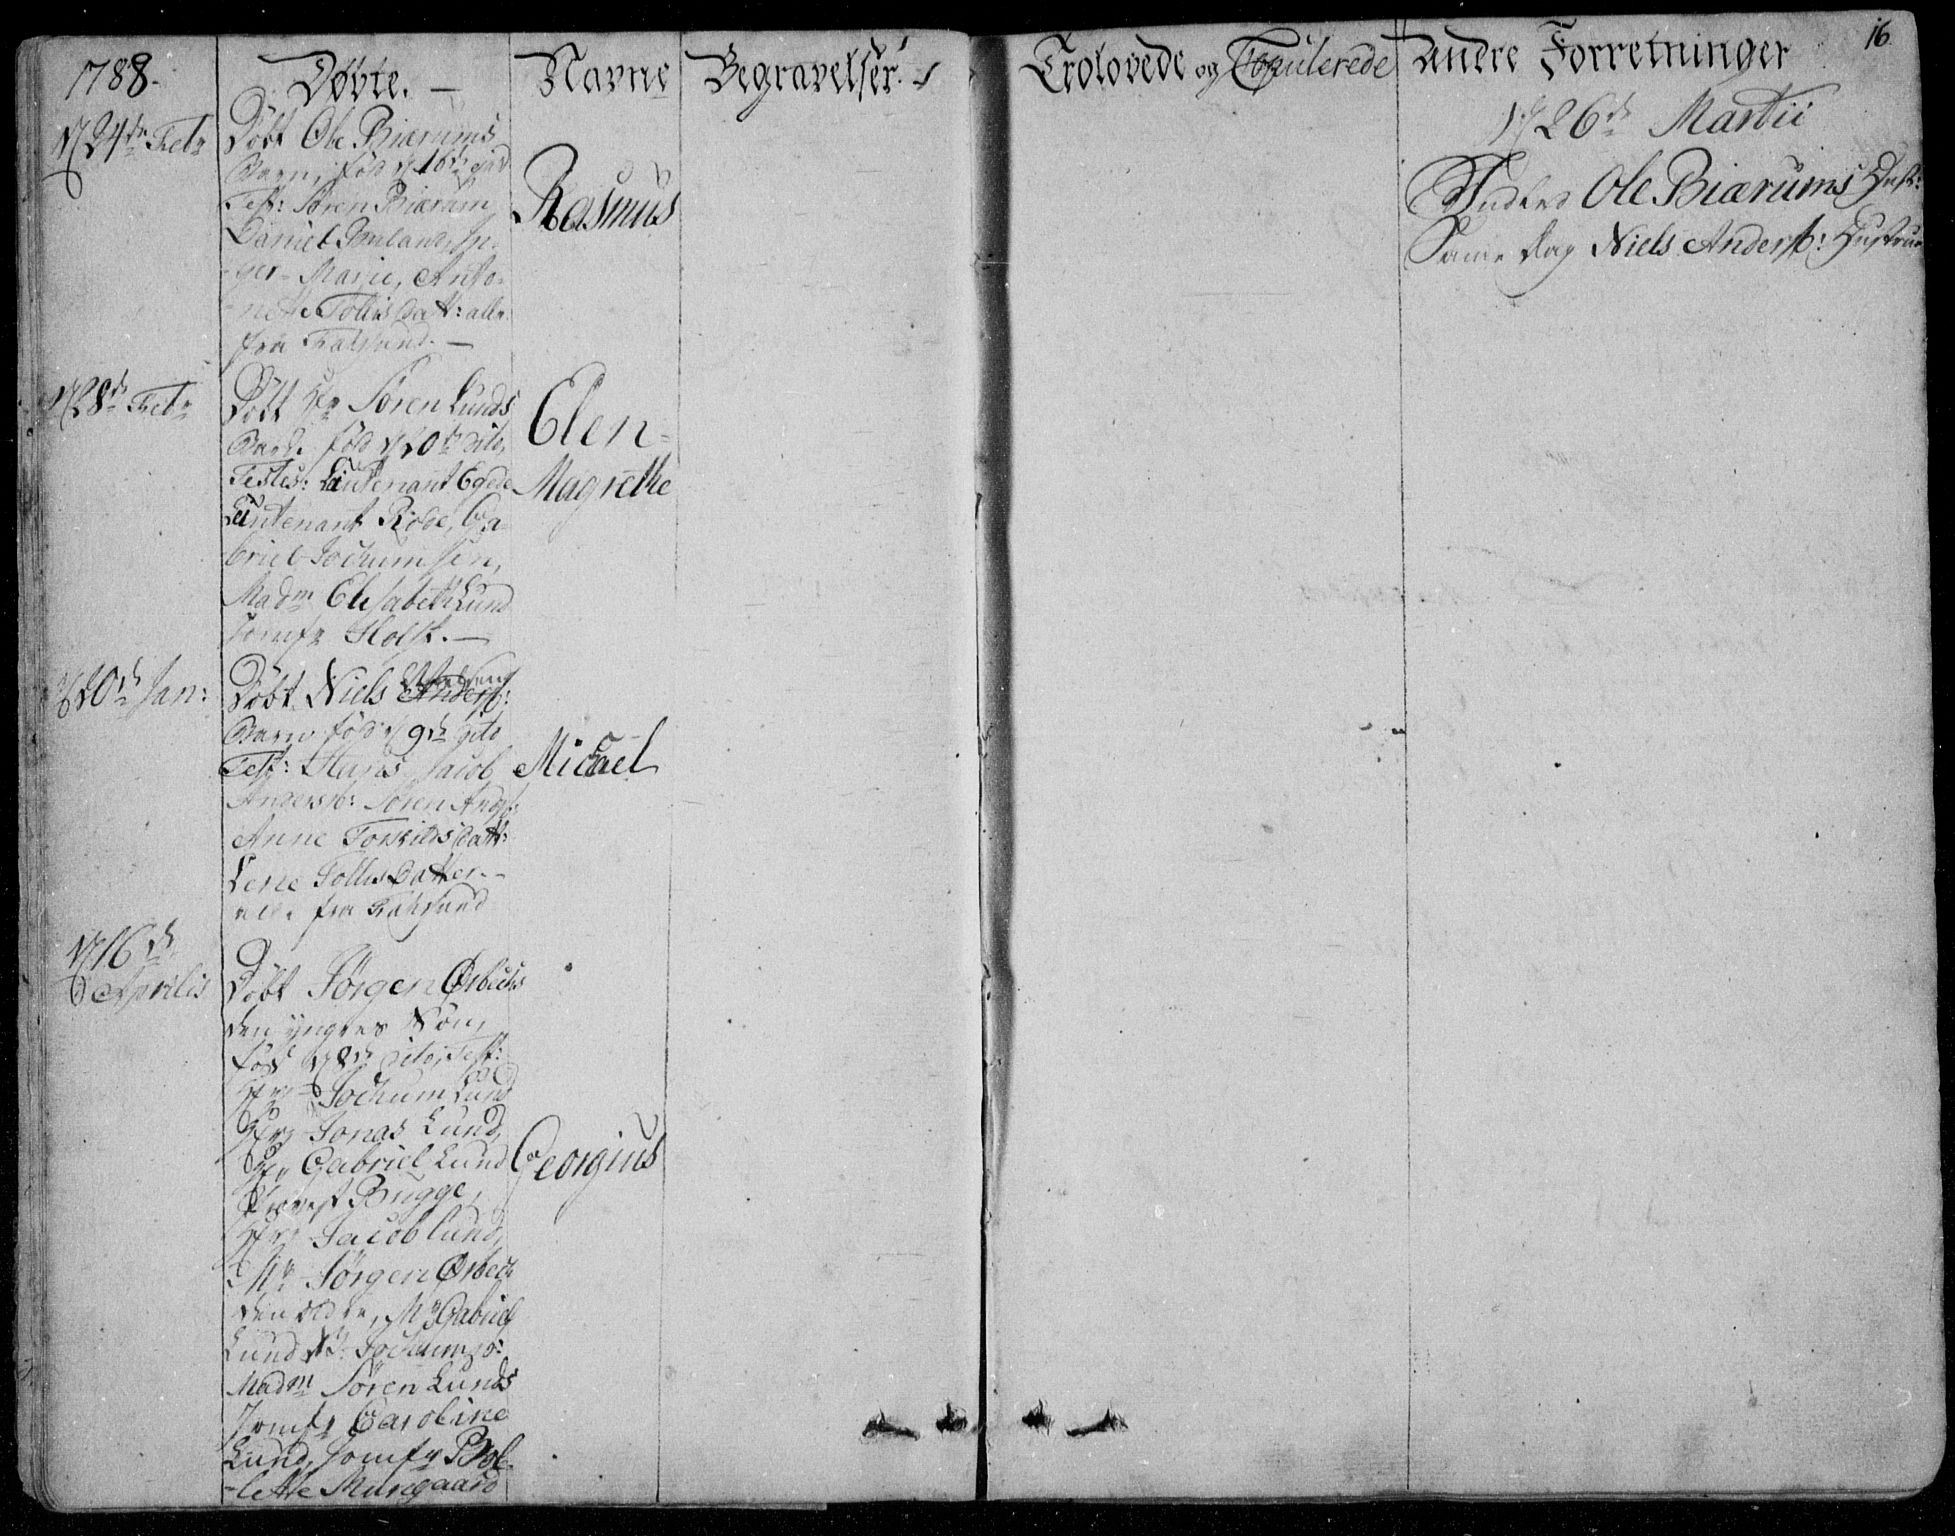 1788.
Døbte. —
Navne
Begravelser.
Trolovede og Copulerede
Andre Forretninger
16
24de Febr
Døbt Ole Biærums
Barn, fød d 16de
Test: Søren Biærum
Daniel In-
ger Marie, Anto-
nette Tollis Datt: alle
fra Rakesund. —
Rasmus
28de Febr
Døbt Hr Søren Lunds
Barn. fød d 20de dito,
Testes: Lieutenant Egede
Lieutenant Rode, Ga-
briel Jochumsen,
Madm Elisabeth Lund
Jomfr Holst. —
Elen-
Magrethe
20de Jan:
Døbt Niels Anders:
Barn fød d 9de dito
Test: Hans Jacob
Anderss: Søren And:
Anne Torkilds Datt:
Lene Tollis Datter. -
alle fra Rakesund
Micael
16de
Aprilis
Døbt Jørgen Ørbechs
den yngres Søn,
fød d 8de dito, Test:
Hr Jochum Lund
Hr Jonas Lund,
Hr Gabriel Lund
Provst Bugge,
Hr Jacob Lund,
Mr Jørgen Ørbech
den ældre, Mr Gabriel
Lund Jochums:
Madm Søren Lunds
Jomfr Caroline
Lund, Jomfr Bol-
lette Mungaard
Georgius
d 26de Martii
Indled Ole Biærums Hust:
Same Dag Niels Anders: Hustrue